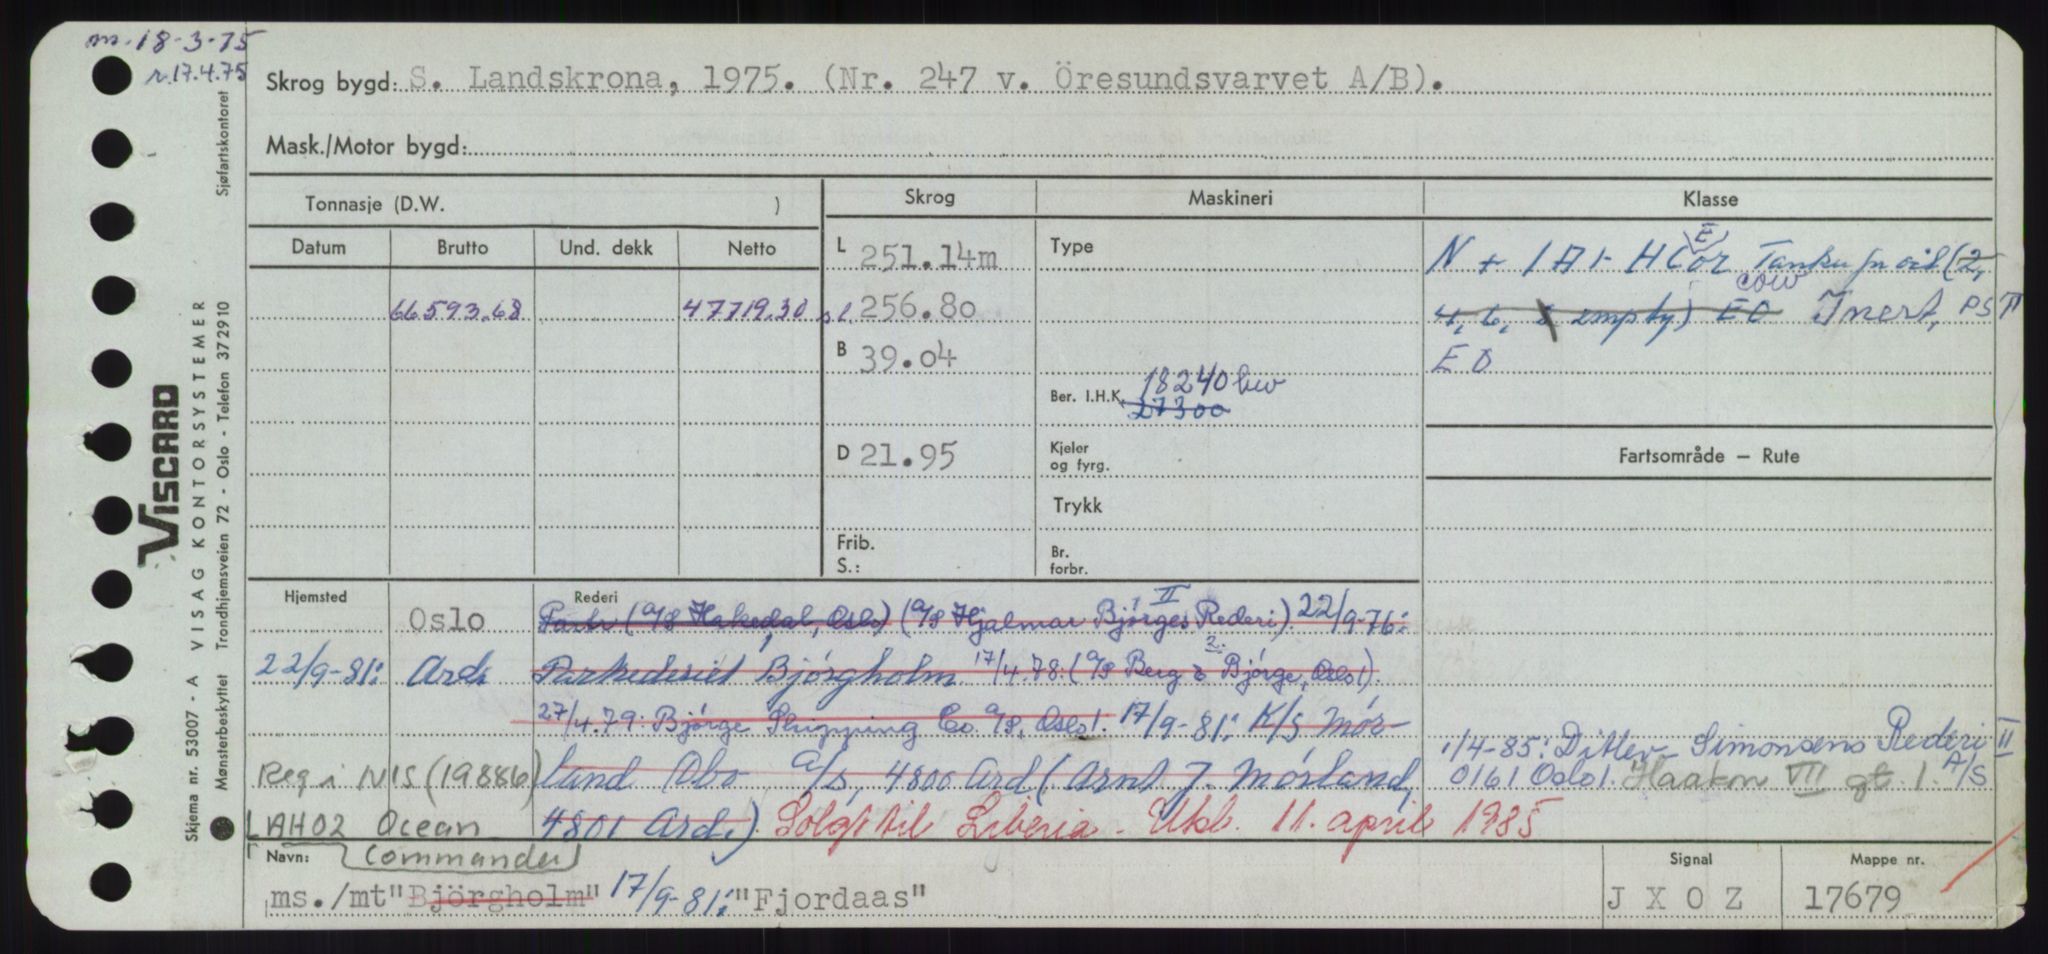 m. 18-3-75
r. 17.4.75
Skrog bygd: S. Landskrona, 1975. (Nr. 247 v. Öresundsvarvet A/B).
Mask./Motor bygd:
Tonnasje (D.W. )
Skrog
Maskineri
Klasse
Datum
Brutto
Und. dekk
Netto
66593.68
47719.30
L 251.14m
s.l. 256.80
B 39.04
D 21.95
Frib.
S.:
Type
18240 bw
Ber. I.H.K. 27300
Kjeler
og fyrg.
Trykk
Br.
forbr.
E
N + 1A1- HC or Tank f n oil (2,
COW
4, 6, 8 empty) EO Inert, PST
EO
Fartsområde – Rute
Hjemsted
Rederi
II
Oslo Partr (A/S Hakedal, Oslo) (A/S Hjalmar Bjørges Rederi). 22/9-76:
22/9-81: Ard. Partrederiet Bjørgholm 17/4.78: (A/S Berg & Bjørge, Oslo 1).
2.
27/4.79: Bjørge Shipping Co. A/S, Oslo 1. 17/9-81: K/S Mør-
Reg i NIS (19886) land Obo A/S, 4800 Ard (Arnt J. Mørland,
LAHO2 Ocean 4801 Ard.). Solgt til Liberia - Utkl. 11. april 1985
Commander
1/4-85: Ditlev-Simonsens Rederi II A/S
0161 Oslo 1. Haakon VII gt 1.
Navn:
ms./mt "Björgholm" 17/9-81: "Fjordaas"
Signal
J X O Z
Mappe nr.
17679
VISCARD
VISAG KONTORSYSTEMER
Skjema nr. 53007 - A
Mønsterbeskyttet Trondhjemsveien 72 - Oslo - Telefon 372910
Sjøfartskontoret